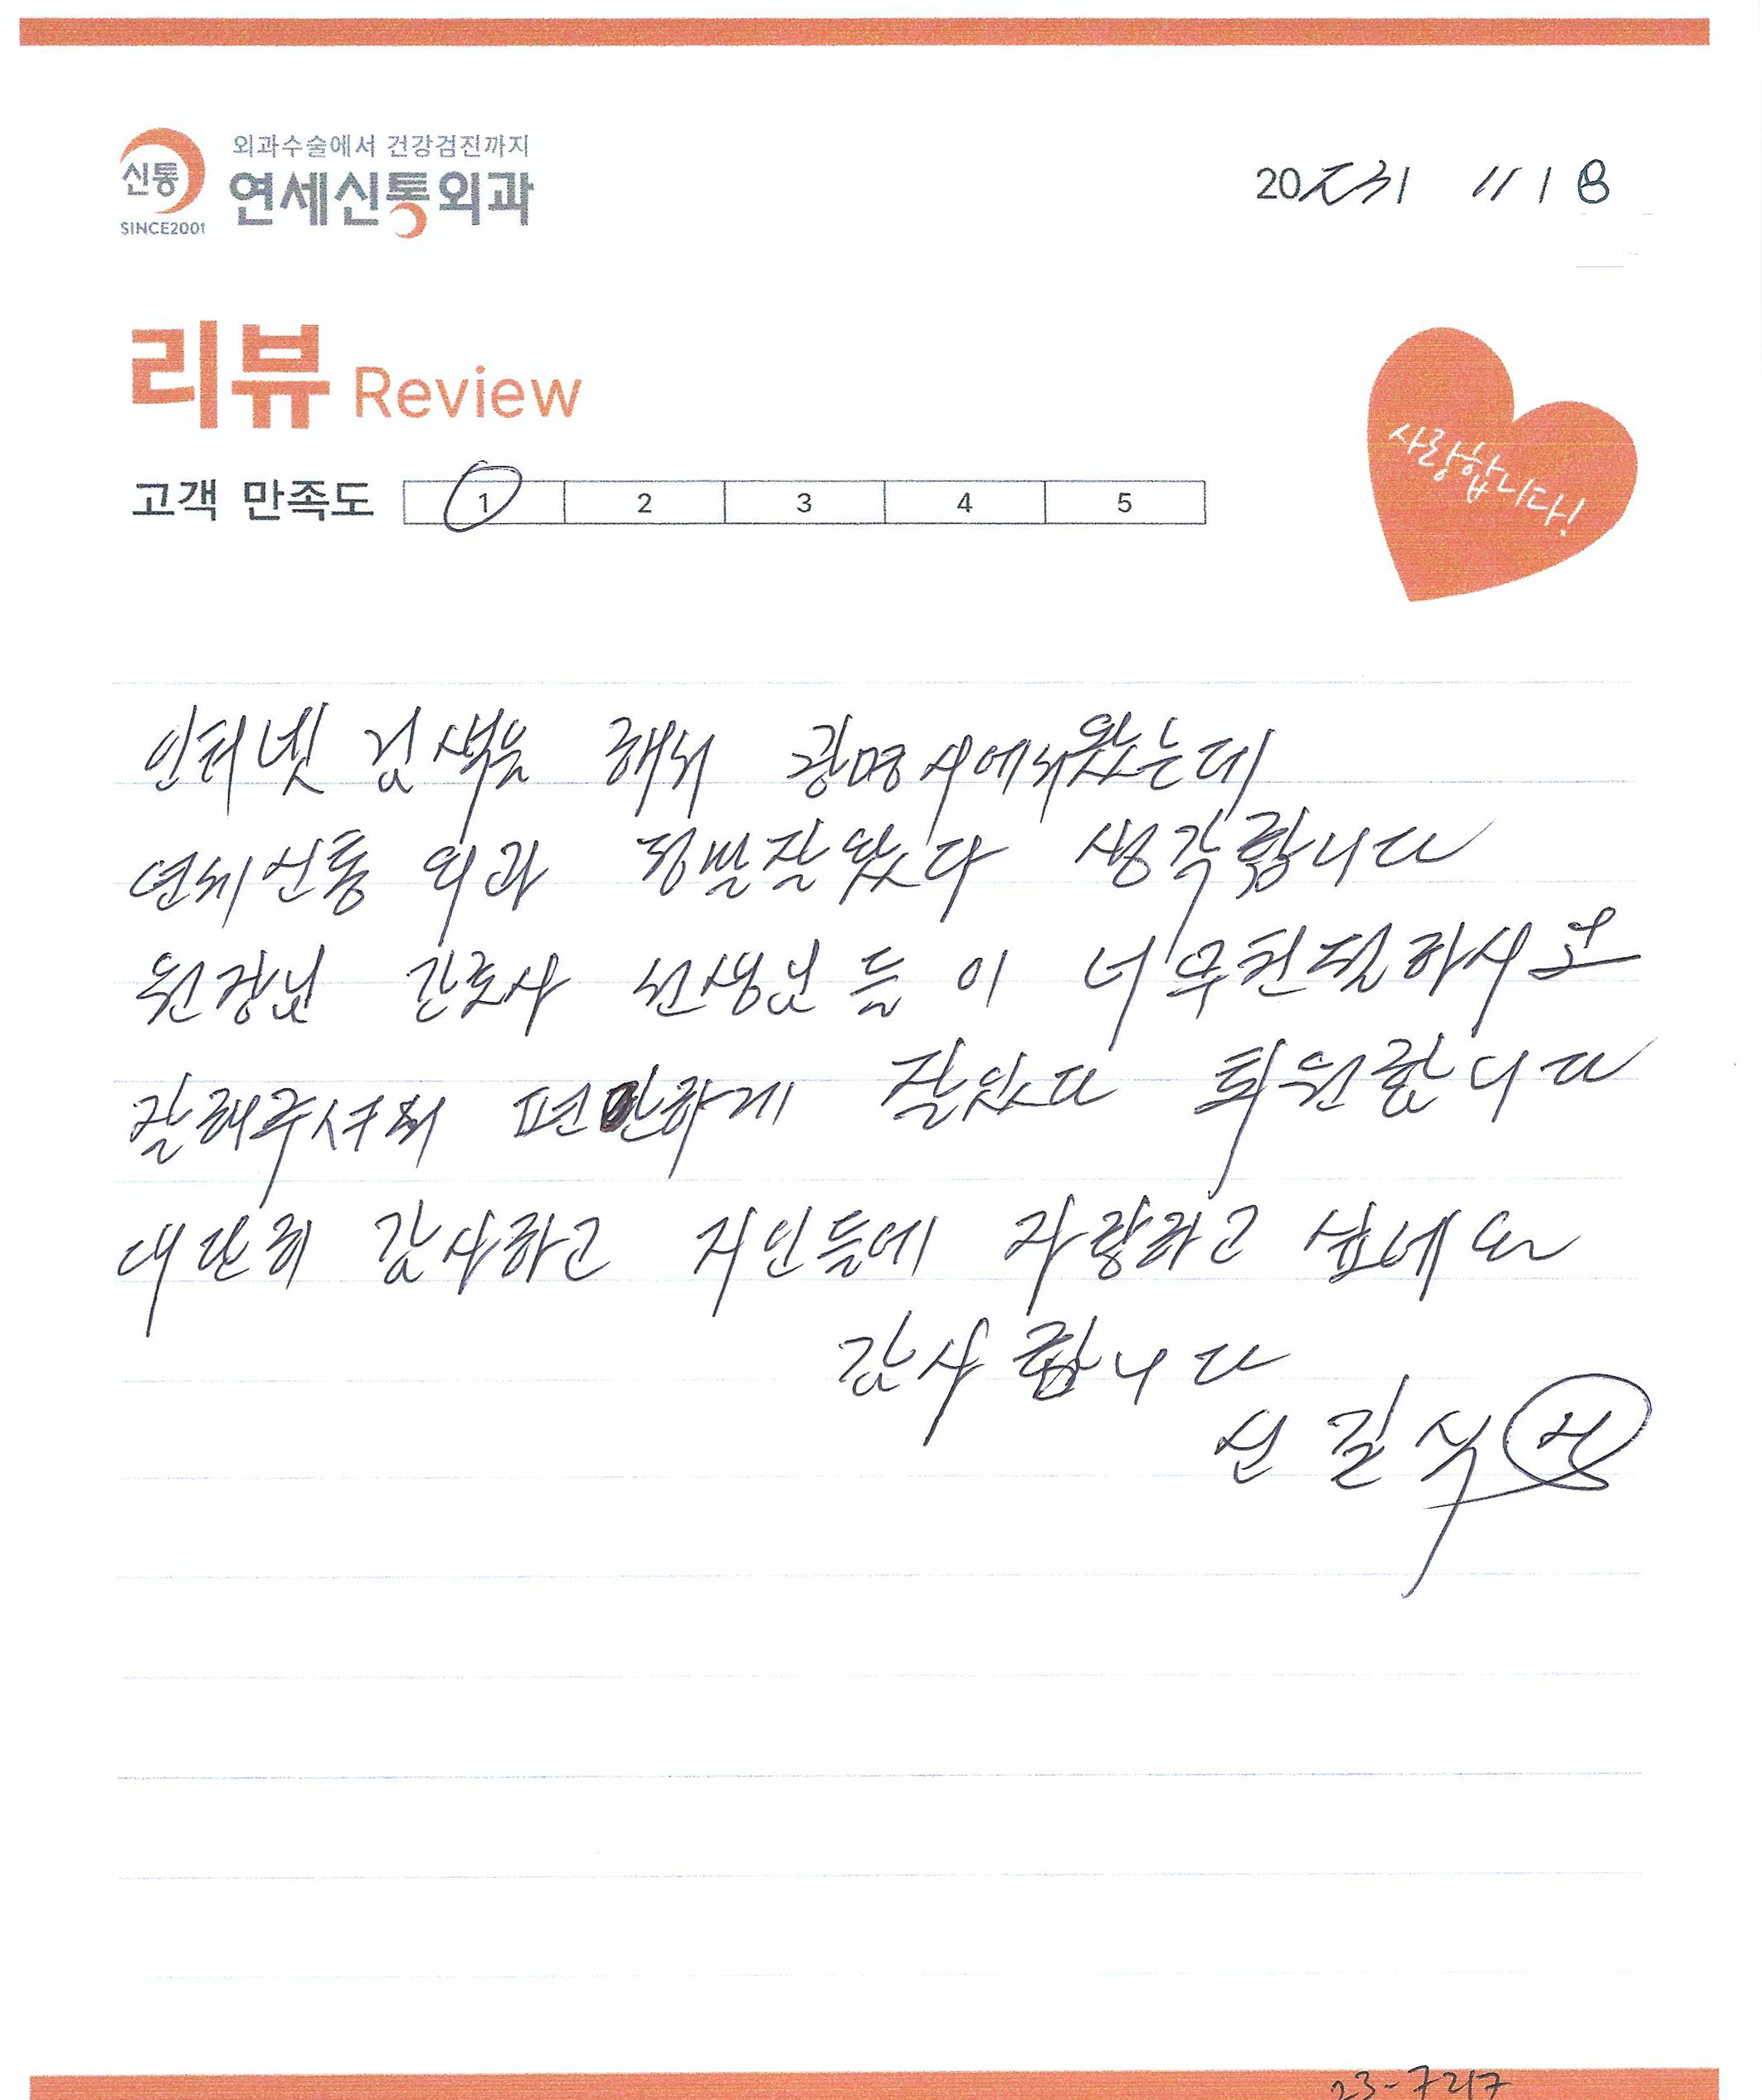 외과수술에서 건강검진까지
신통 연세신통외과
SINCE2001
2023 / 11 / 8
리뷰 Review
고객 만족도 1 2 3 4 5
사랑합니다!
인터넷 검색을 해서 광명시에서 왔는데
연세신통 외과 정말 잘 왔다 생각합니다
원장님 간호사 선생님들이 너무 친절하시고
잘해주셔서 편안하게 잘있다 퇴원합니다
대단히 감사하고 지인들에 자랑하고 싶네요
감사합니다
길식
23-7217